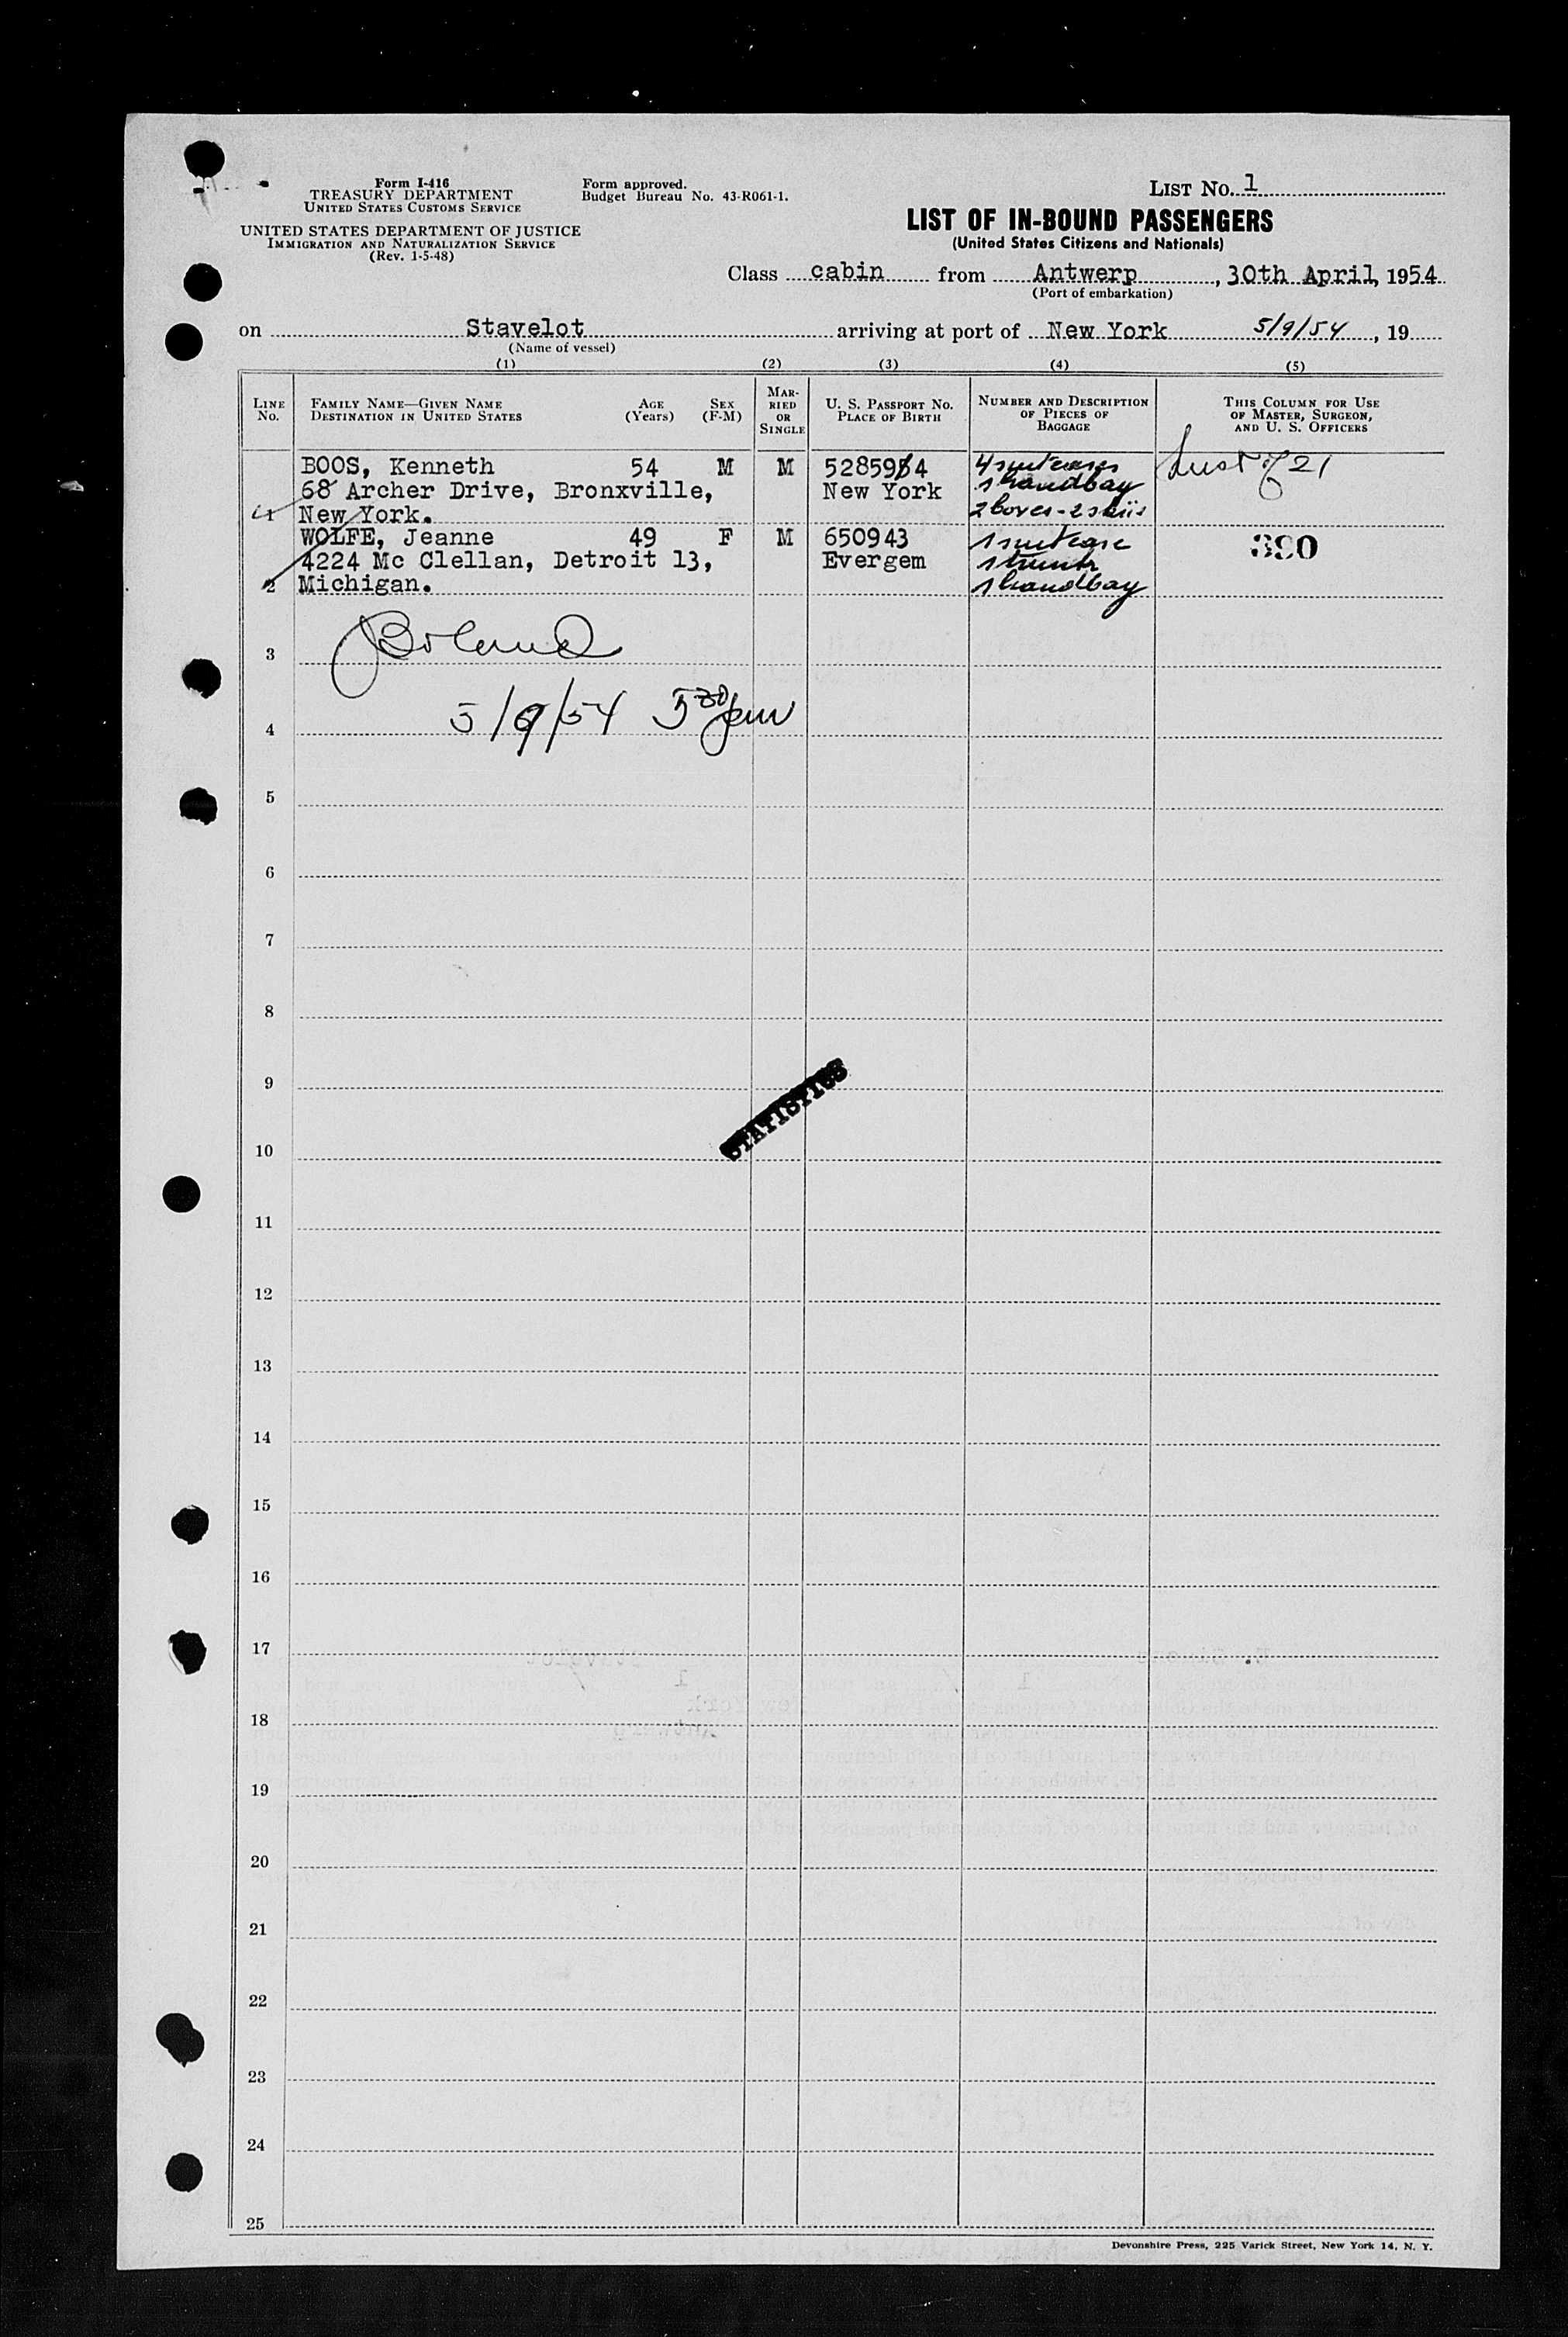 Form I-416
TREASURY DEPARTMENT
UNITED STATES CUSTOMS SERVICE
UNITED STATES DEPARTMENT OF JUSTICE
IMMIGRATION AND NATURALIZATION SERVICE
(Rev. 1-5-48)
Form approved.
Budget Bureau No. 43-R061-1.
LIST No. 1
LIST OF IN-BOUND PASSENGERS
(United States Citizens and Nationals)
Class cabin from Antwerp, 30th April, 1954
(Port of embarkation)
on Stavelot arriving at port of New York 5/9/54, 19
(Name of vessel)
(1) (2) (3) (4) (5)
LINE No.
FAMILY NAME—GIVEN NAME
DESTINATION IN UNITED STATES
AGE (Years)
SEX (F-M)
MARRIED OR SINGLE
U. S. PASSPORT NO.
PLACE OF BIRTH
NUMBER AND DESCRIPTION OF PIECES OF BAGGAGE
THIS COLUMN FOR USE OF MASTER, SURGEON, AND U. S. OFFICERS
BOOS, Kenneth 54 M M 528594 4 suitcases
68 Archer Drive, Bronxville, New York 1 handbag
1 New York. 2 boxes - 2 skiis
WOLFE, Jeanne 49 F M 650943 1 suitcase 390
4224 Mc Clellan, Detroit 13, Evergem 1 trunk
2 Michigan. 1 handbag
3
4 5/9/54 5 30 pm
5
6
7
8
9
STATISTICS
10
11
12
13
14
15
16
17
18
19
20
21
22
23
24
25
Devonshire Press, 225 Varick Street, New York 14, N. Y.